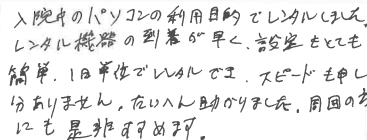 入院中のパソコンの利用目的でレンタルしました。
レンタル機器の到着が早く、設定もとても
簡単、1日単位でレンタルでき、スピードも申し
分ありません。たいへん助かりました。周囲の方
にも是非すすめます。